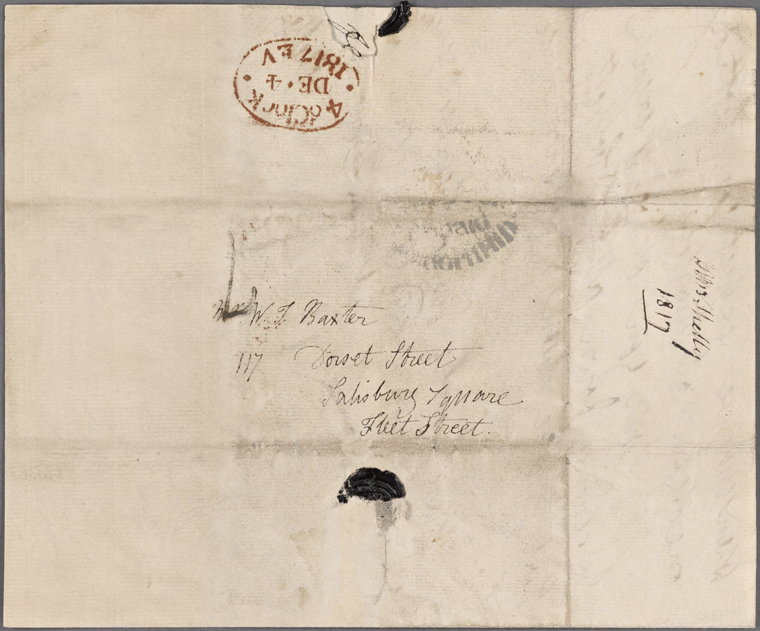 4 o'Clock
DE · 4
1817 EV
Mr W. T. Baxter
117 Dorset Street
Salisbury Square
Fleet Street.
Mrs. Shelley
1817